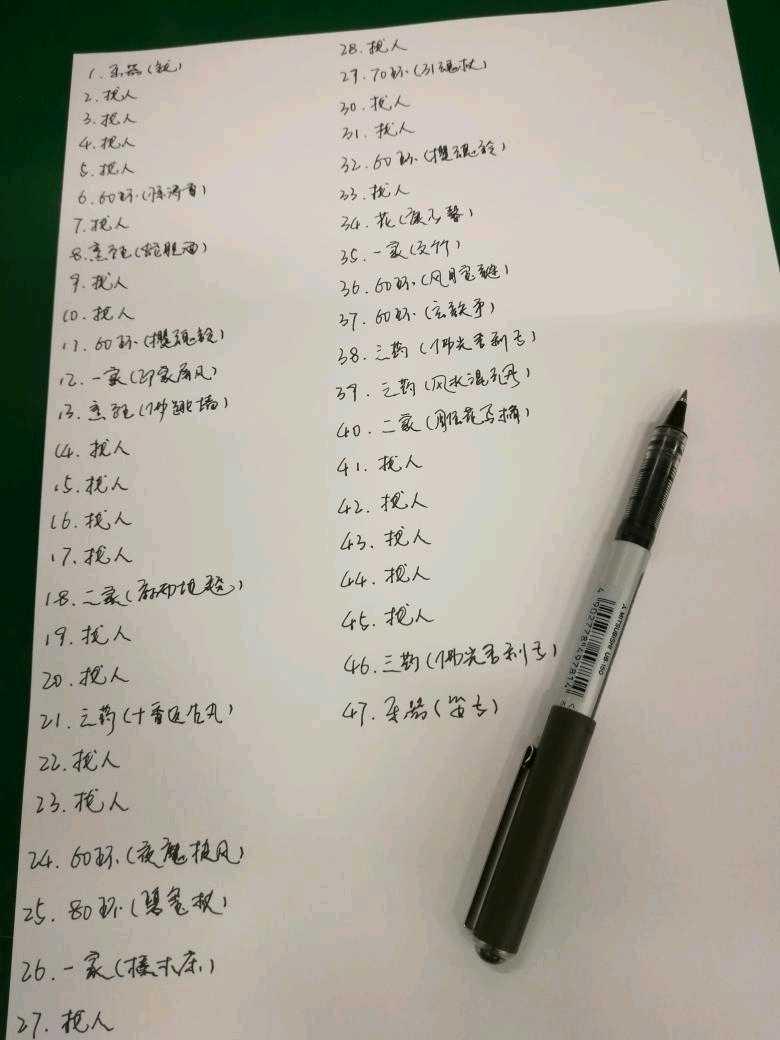 1. 乐器(钹)
2. 找人
3. 找人
4. 找人
5. 找人
6. 60环(
7. 找人
8. 烹饪(蛇胆酒)
9. 找人
10. 找人
11. 60环(摄魂铃)
12. 一家(印象屏风)
13. 烹饪(佛跳墙)
14. 找人
15. 找人
16. 找人
17. 找人
18. 二家(麻布地毯)
19. 找人
20. 找人
21. 三药(十香返生丸)
22. 找人
23. 找人
24. 60环(夜魔披风)
25. 80环(
26. 一家(榛木床)
27. 找人
28. 找人
29. 70环(引魂杖)
30. 找人
31. 找人
32. 60环(摄魂铃)
33. 找人
34. 花(康乃馨)
35. 一家(文竹)
36. 60环(风月宝链)
37. 60环(玄铁矛)
38. 三药(佛光舍利子)
39. 三药(风水混元丹)
40. 二家(
41. 找人
42. 找人
43. 找人
44. 找人
45. 找人
46. 三药(佛光舍利子)
47. 乐器(笛子)
MITSUBISHI UB-150
4 902778 497814